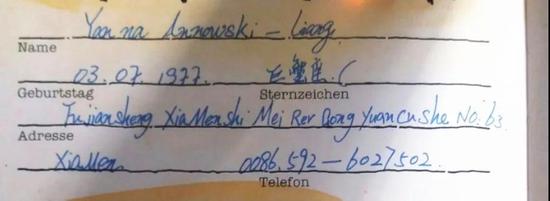 Yanna Annowski - Liang
Name
03.07.1977. 巨蟹座.(
Geburtstag Sternzeichen
Fujiansheng XiaMenshi Mei Ren Dong Yuan Cushe No. 63
Adresse
XiaMen 0086.592—6027502.
Telefon